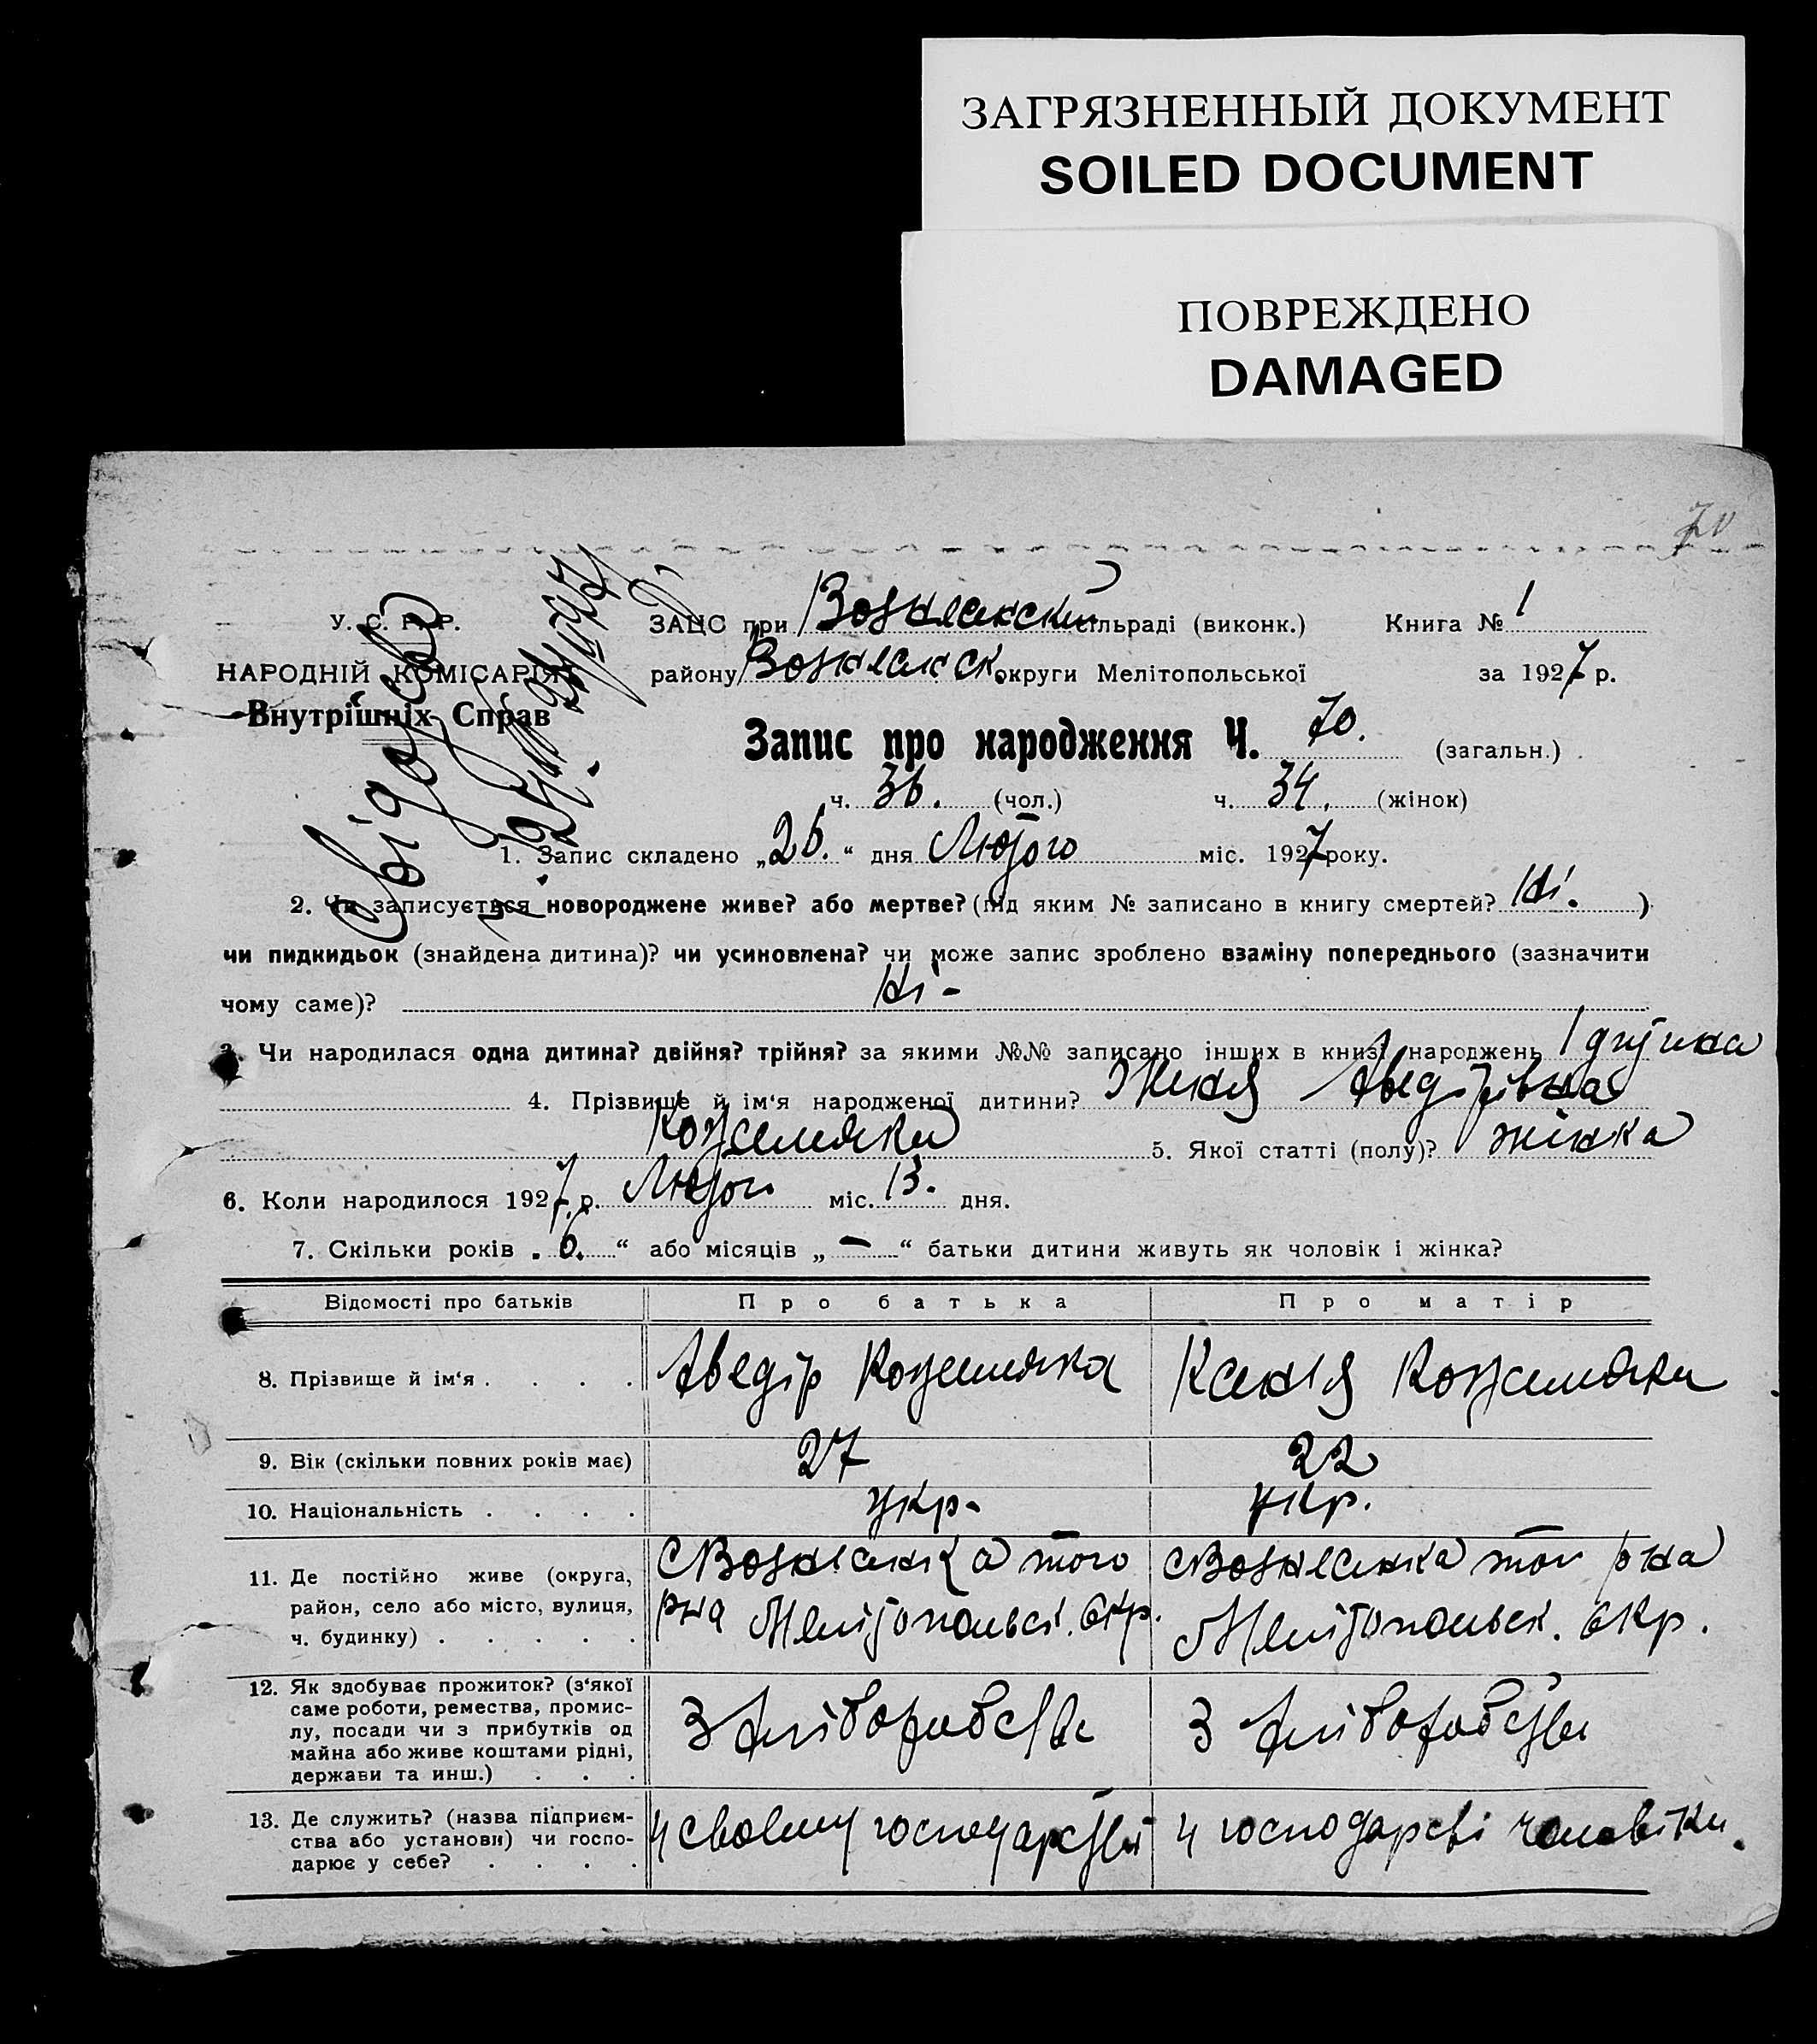 ЗАГРЯЗНЕННЫЙ ДОКУМЕНТ
SOILED DOCUMENT
ПОВРЕЖДЕНО
DAMAGED
70
У. С. Р. Р.
НАРОДНІЙ КОМІСАРІЯТ
Внутрішніх Справ
ЗАЦС при Вознесенский сільраді (виконк.) Книга № 1
району Вознесенск. округи Мелітопольської за 1927 р.
Запис про народження Ч. 70. (загальн.)
ч. 36. (чол.) ч. 34. (жінок)
1. Запис складено „26.“ дня Лютого міс. 1927 року.
2. Чи записується новороджене живе? або мертве? (під яким № записано в книгу смертей? Ні. )
чи пидкидьок (знайдена дитина)? чи усиновлена? чи може запис зроблено взаміну попереднього (зазначити
чому саме)? Ні -
3. Чи народилася одна дитина? двійня? трійня? за якими №№ записано інших в книзі народжень 1 дитина
4. Прізвище й ім‘я народженої дитини? Женя Аведірівна
Кожемяка 5. Якої статті (полу)? жінка
6. Коли народилося 1927 р. Лютого міс. 13. дня.
7. Скільки років „6.“ або місяців „—“ батьки дитини живуть як чоловік і жінка?
Відомості про батьків Про батька Про матір
8. Прізвище й ім‘я . . . . Аведір Кожемяка Ксенія Кожемяка
9. Вік (скільки повних років має) 27 22
10. Національність . . . . укр. укр.
11. Де постійно живе (округа, район, село або місто, вулиця, ч. будинку) . . . . . с Вознесенка того рна Мелітопольськ. Окр. с Вознесенка того рна Мелітопольськ. Окр.
12. Як здобуває прожиток? (з‘якої саме роботи, ремества, промислу, посади чи з прибутків од майна або живе коштами рідні, держави та инш.) . . . З хліборобства З хліборобства
13. Де служить? (назва підприємства або установи) чи господарює у себе? . . . . У своему господарстві У господарстві чоловіка.